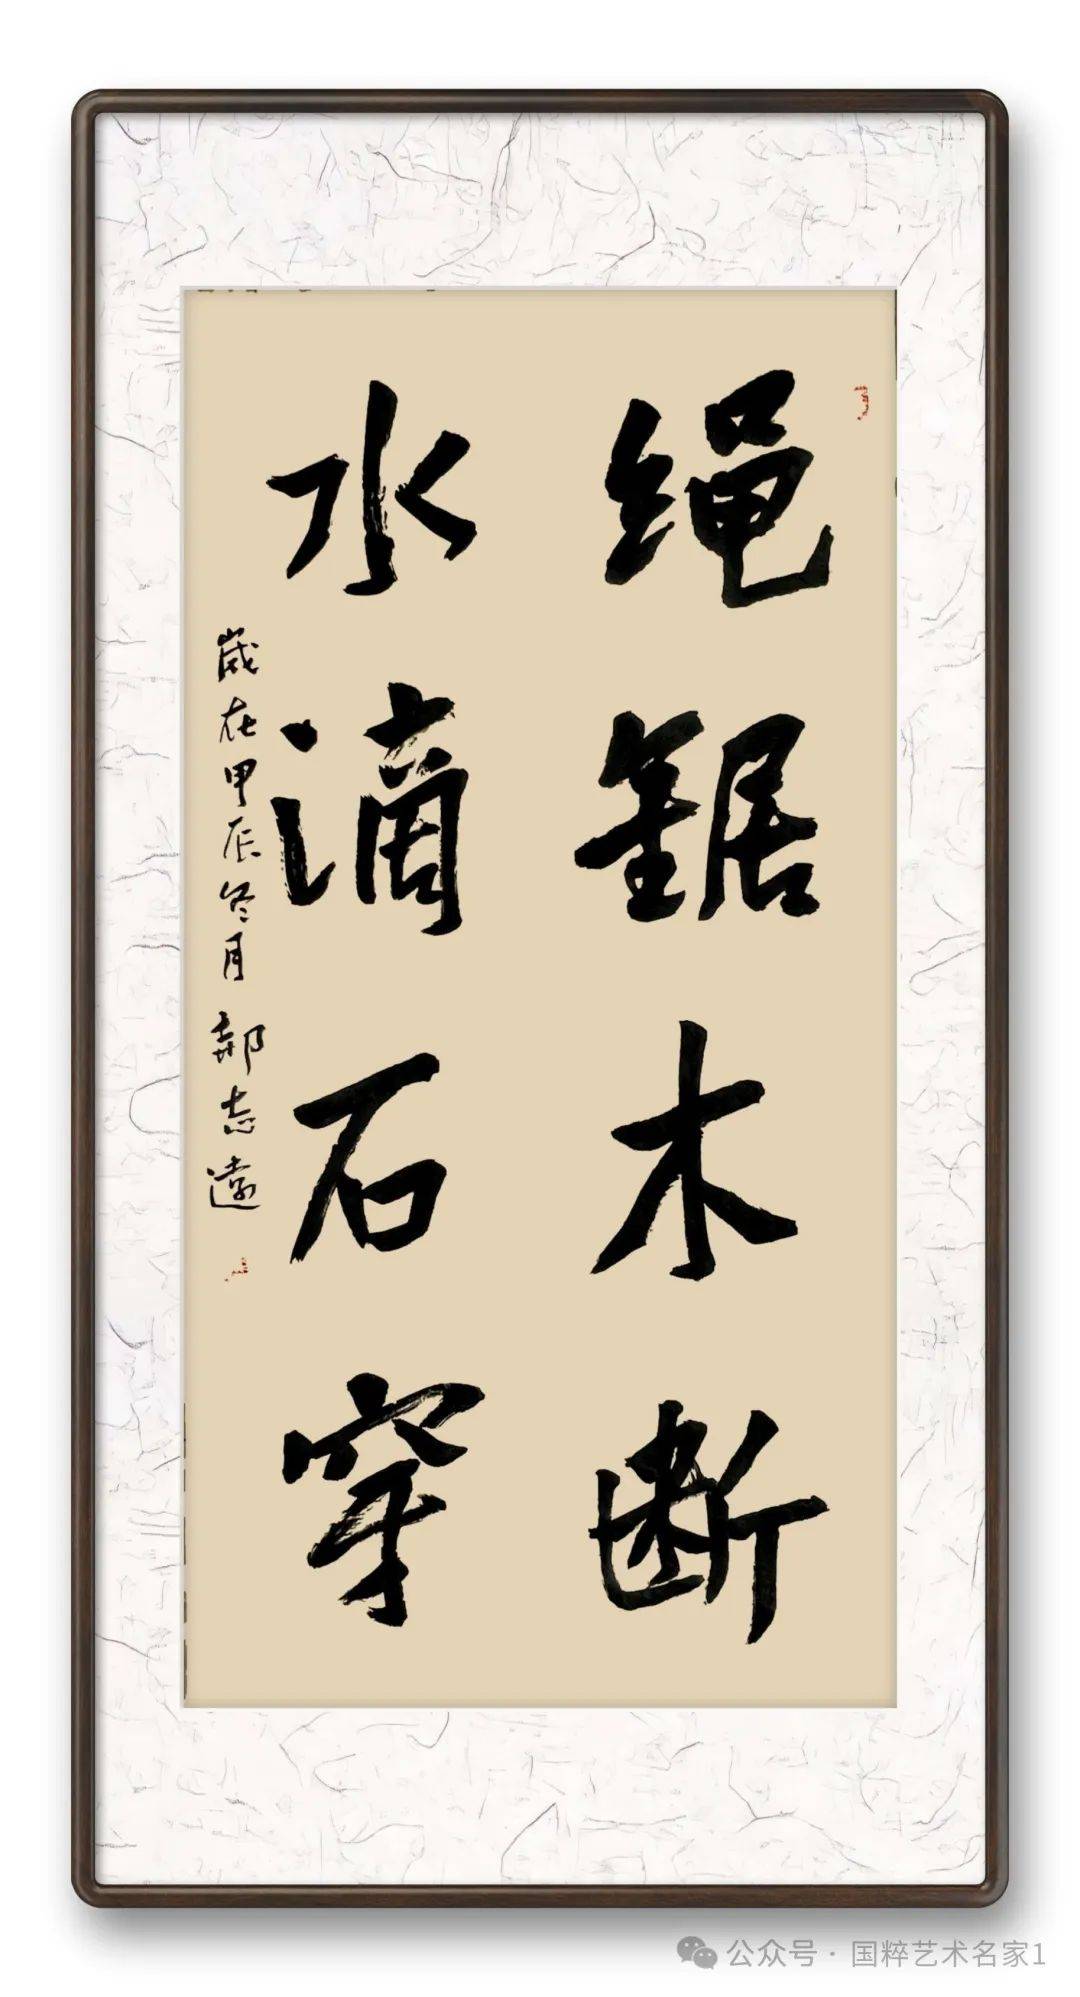 绳锯木断
水滴石穿
歲在甲辰冬月 郝志遠
公众号 · 国粹艺术名家1